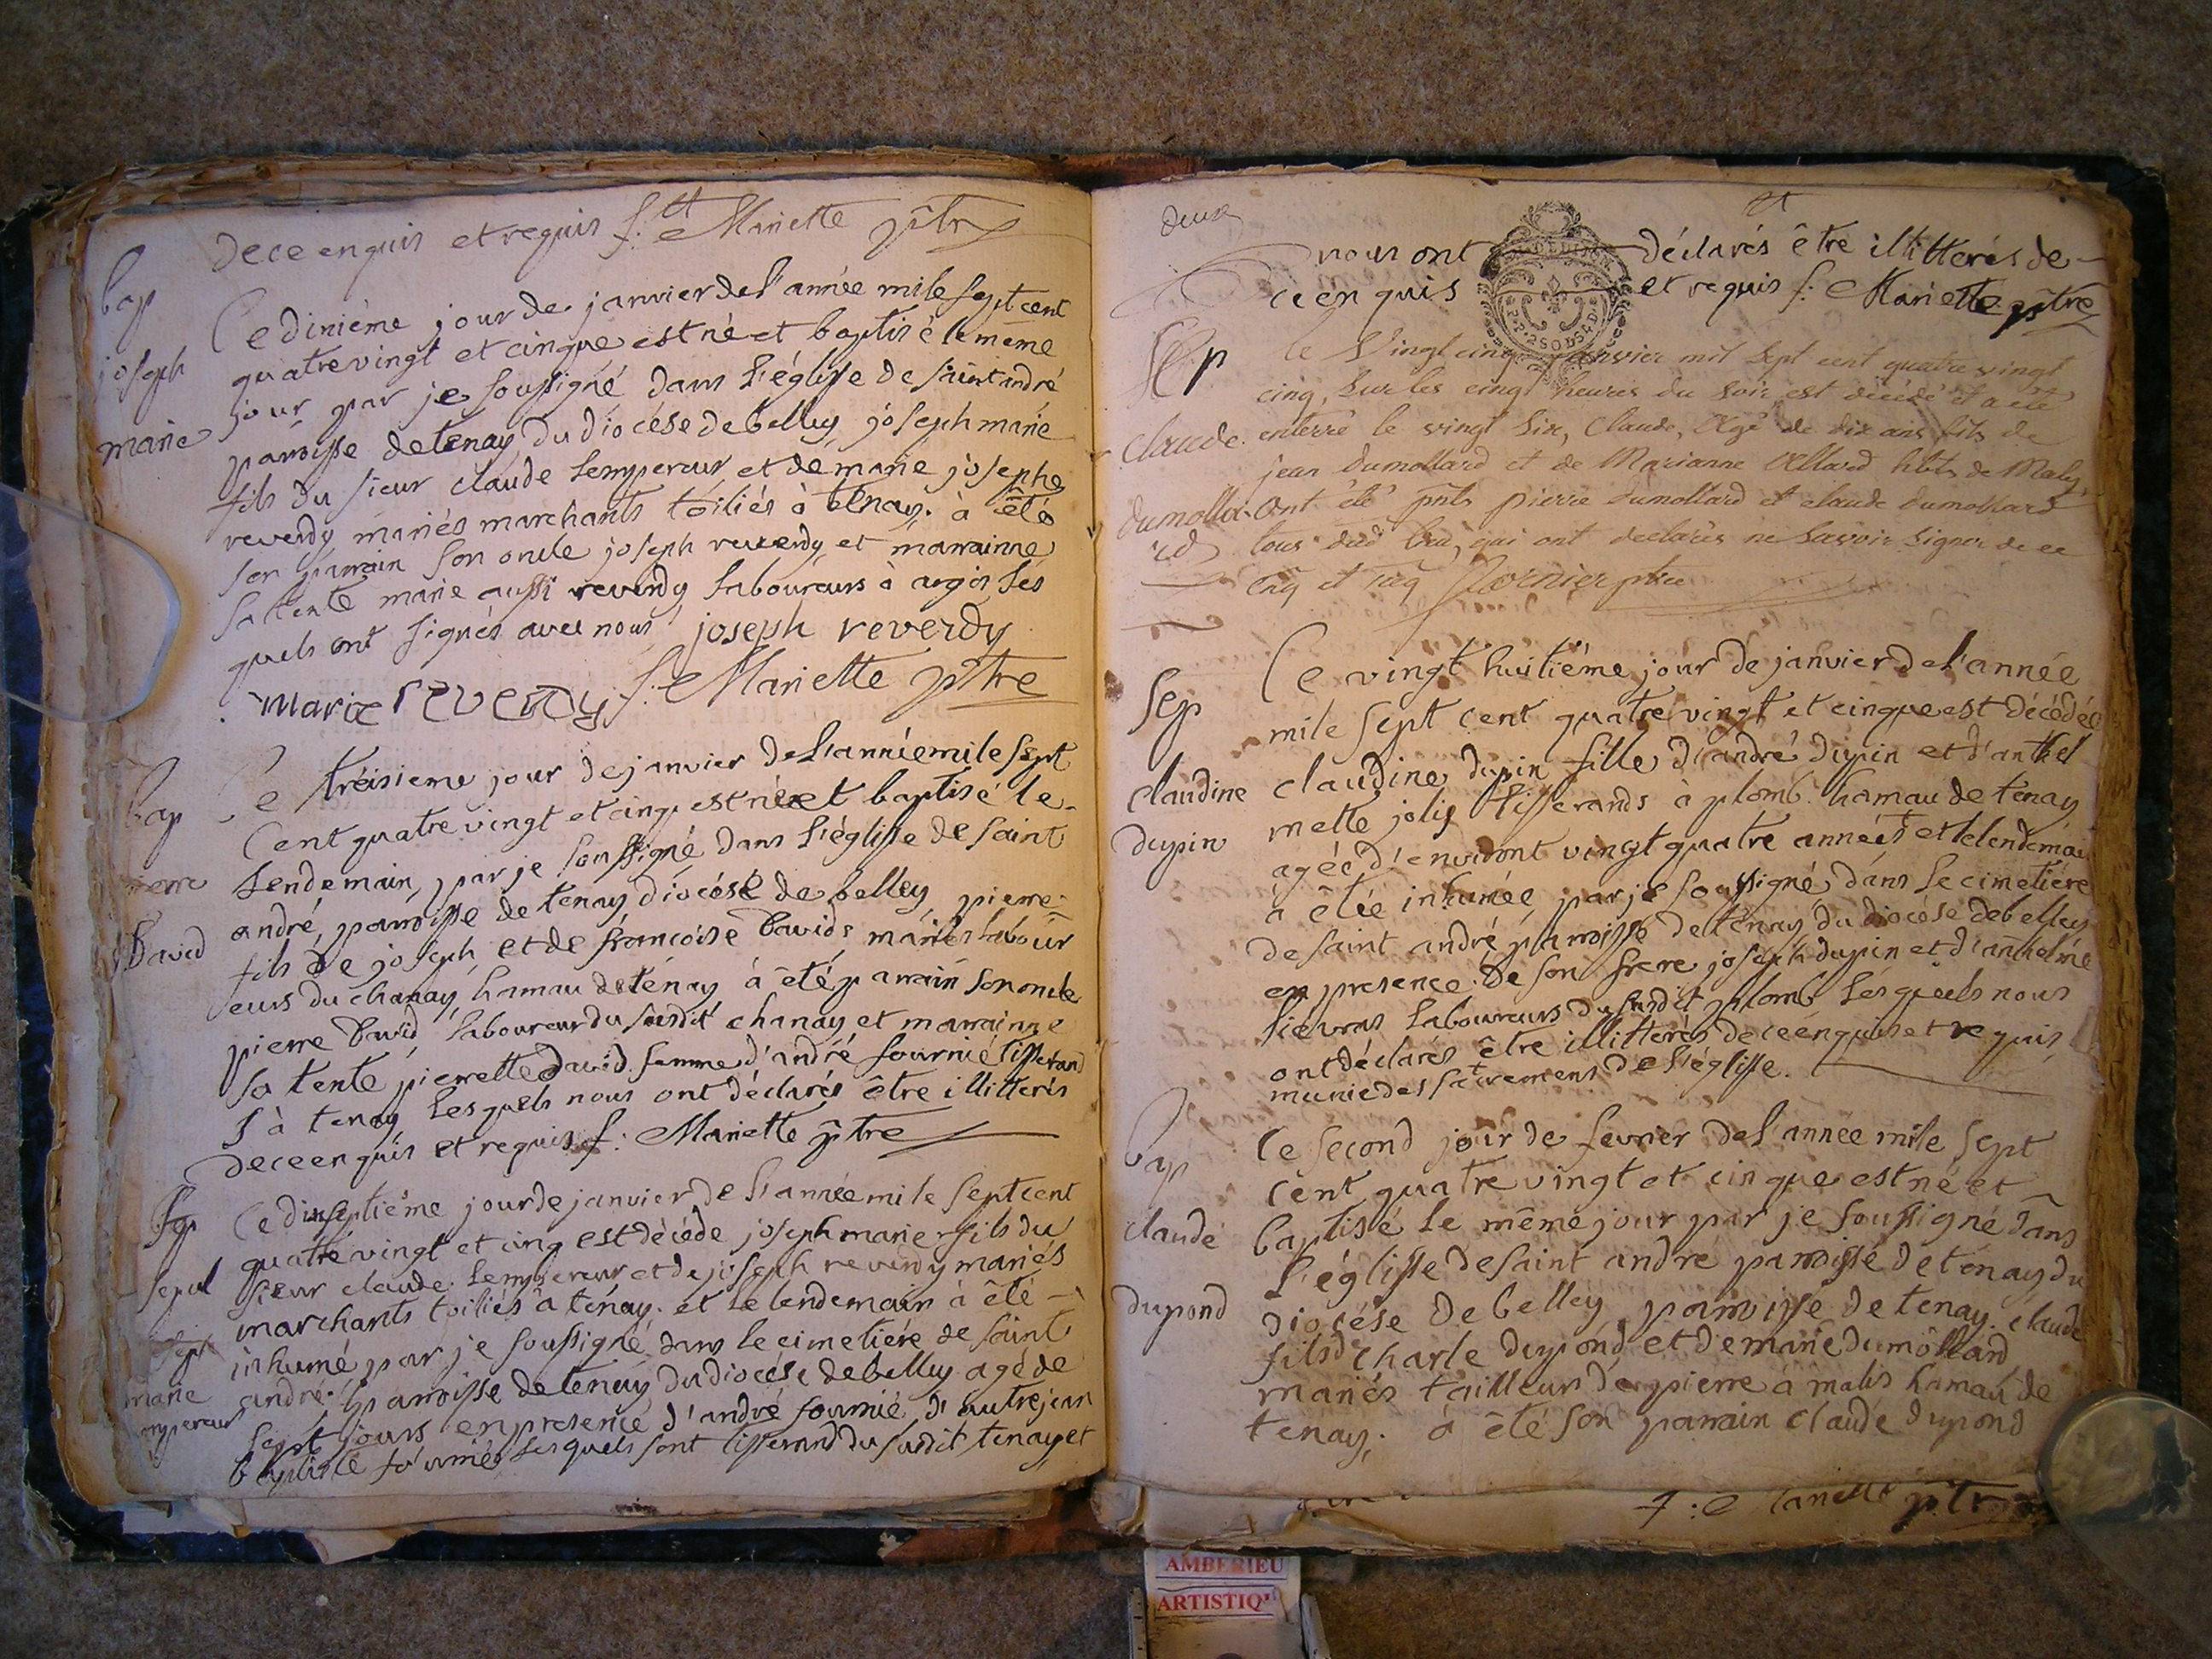 dece enquis et requis f: Mariette ptre
bap
joseph
marie
Ce dixiéme jour de janvier de l'année mile sept cent
quatre vingt et cinque est né et baptisé le même
jour par je soussigné dans l'églisse de saint andré
paroisse de tenay du diocése de belley joseph marie
fils du sieur claude Lempereur et de marie josephe
reverdy mariés marchants toiliés à tenay. à été
son parrain son oncle joseph reverdy et marrainne
sa tente marie aussi reverdy laboureurs à argis les
quels ont signés avec nous joseph reverdy
marie reverdy f: Mariette ptre
bap
pierre
David
Ce treisieme jour de janvier de l'année mile sept
cent quatre vingt et cinq est né et baptisé le
lendemain, par je soussigné dans l'églisse de saint
andré, paroisse de tenay diocésé de belley pierre
fils de joseph et de françoise Davids mariés labour
eurs du chanay, hamau de tenay à été parrain son oncle
pierre David laboureur du susdit chanay et marrainne
sa tente pierrette David femme d'andré fournié tisserand
s à tenay lesquels nous ont déclarés être illitterés
dece enquis et requis f: Mariette ptre
Sep
sepul
joseph
marie
empereur
Ce dixseptiéme jour de janvier de l'année mile sept cent
quatre vingt et cinq est décédé joseph marie fils du
sieur claude Lempereur et de joseph reverdy mariés
marchants toiliés à tenay. et le lendemain à été
inhumé par je soussigné dans le cimetiére de saint
andré paroisse de tenay du diocése de belley agé de
sept jours en presence d'andré fournié, d'autre jean
baptiste fournié, lesquels sont tisserand du susdit tenay et
deux
nous ont déclarés être illitterés de
ce enquis et requis f: Mariette ptre
Sep
claude
dumolla
rd
le Vingt cinq janvier mil sept cent quatre vingt
cinq, sur les cinq heures du soir est décédé et a été
enterré le vingt six, Claude, agé de dix ans fils de
jean Dumollard et de Marianne Allard hbts de Maly,
ont été pnts pierre dumollard et claude dumollard
tous dud lieu, qui ont declarés ne savoir signer de ce
enq et req ptre
Sep
claudine
dupin
Ce vingt huitiéme jour de janvier de l'année
mile sept cent quatre vingt et cinque est décédée
claudine dupin fille d'andré dupin et d'anthel
mette joly tisserands à plomb. hamau de tenay
agée d'environt vingt quatre années et le lendemain
à étée inhumée par je soussigné, dans le cimetiére
de saint andré paroisse de tenay du diocése de belley
en presence de son frere joseph dupin et d'anthelme
lievras laboureurs du susdit plomb lesquels nous
ont déclarés être illitterés de ce enquis et requis
munie des sacremens de l'églisse.
bap
claude
dupond
le second jour de fevrier de l'année mile sept
cent quatre vingt et cinque est né et
baptisé le même jour par je soussigné dans
l'églisse de saint andre paroisse de tenay du
diocése de belley paroisse de tenay. claude
fils de charle dupond et de marie dumollard
mariés tailleurs de pierre à malis hamau de
tenay. à été son parrain claude dupond
f: Mariette ptre
AMBERIEU
ARTISTIQ